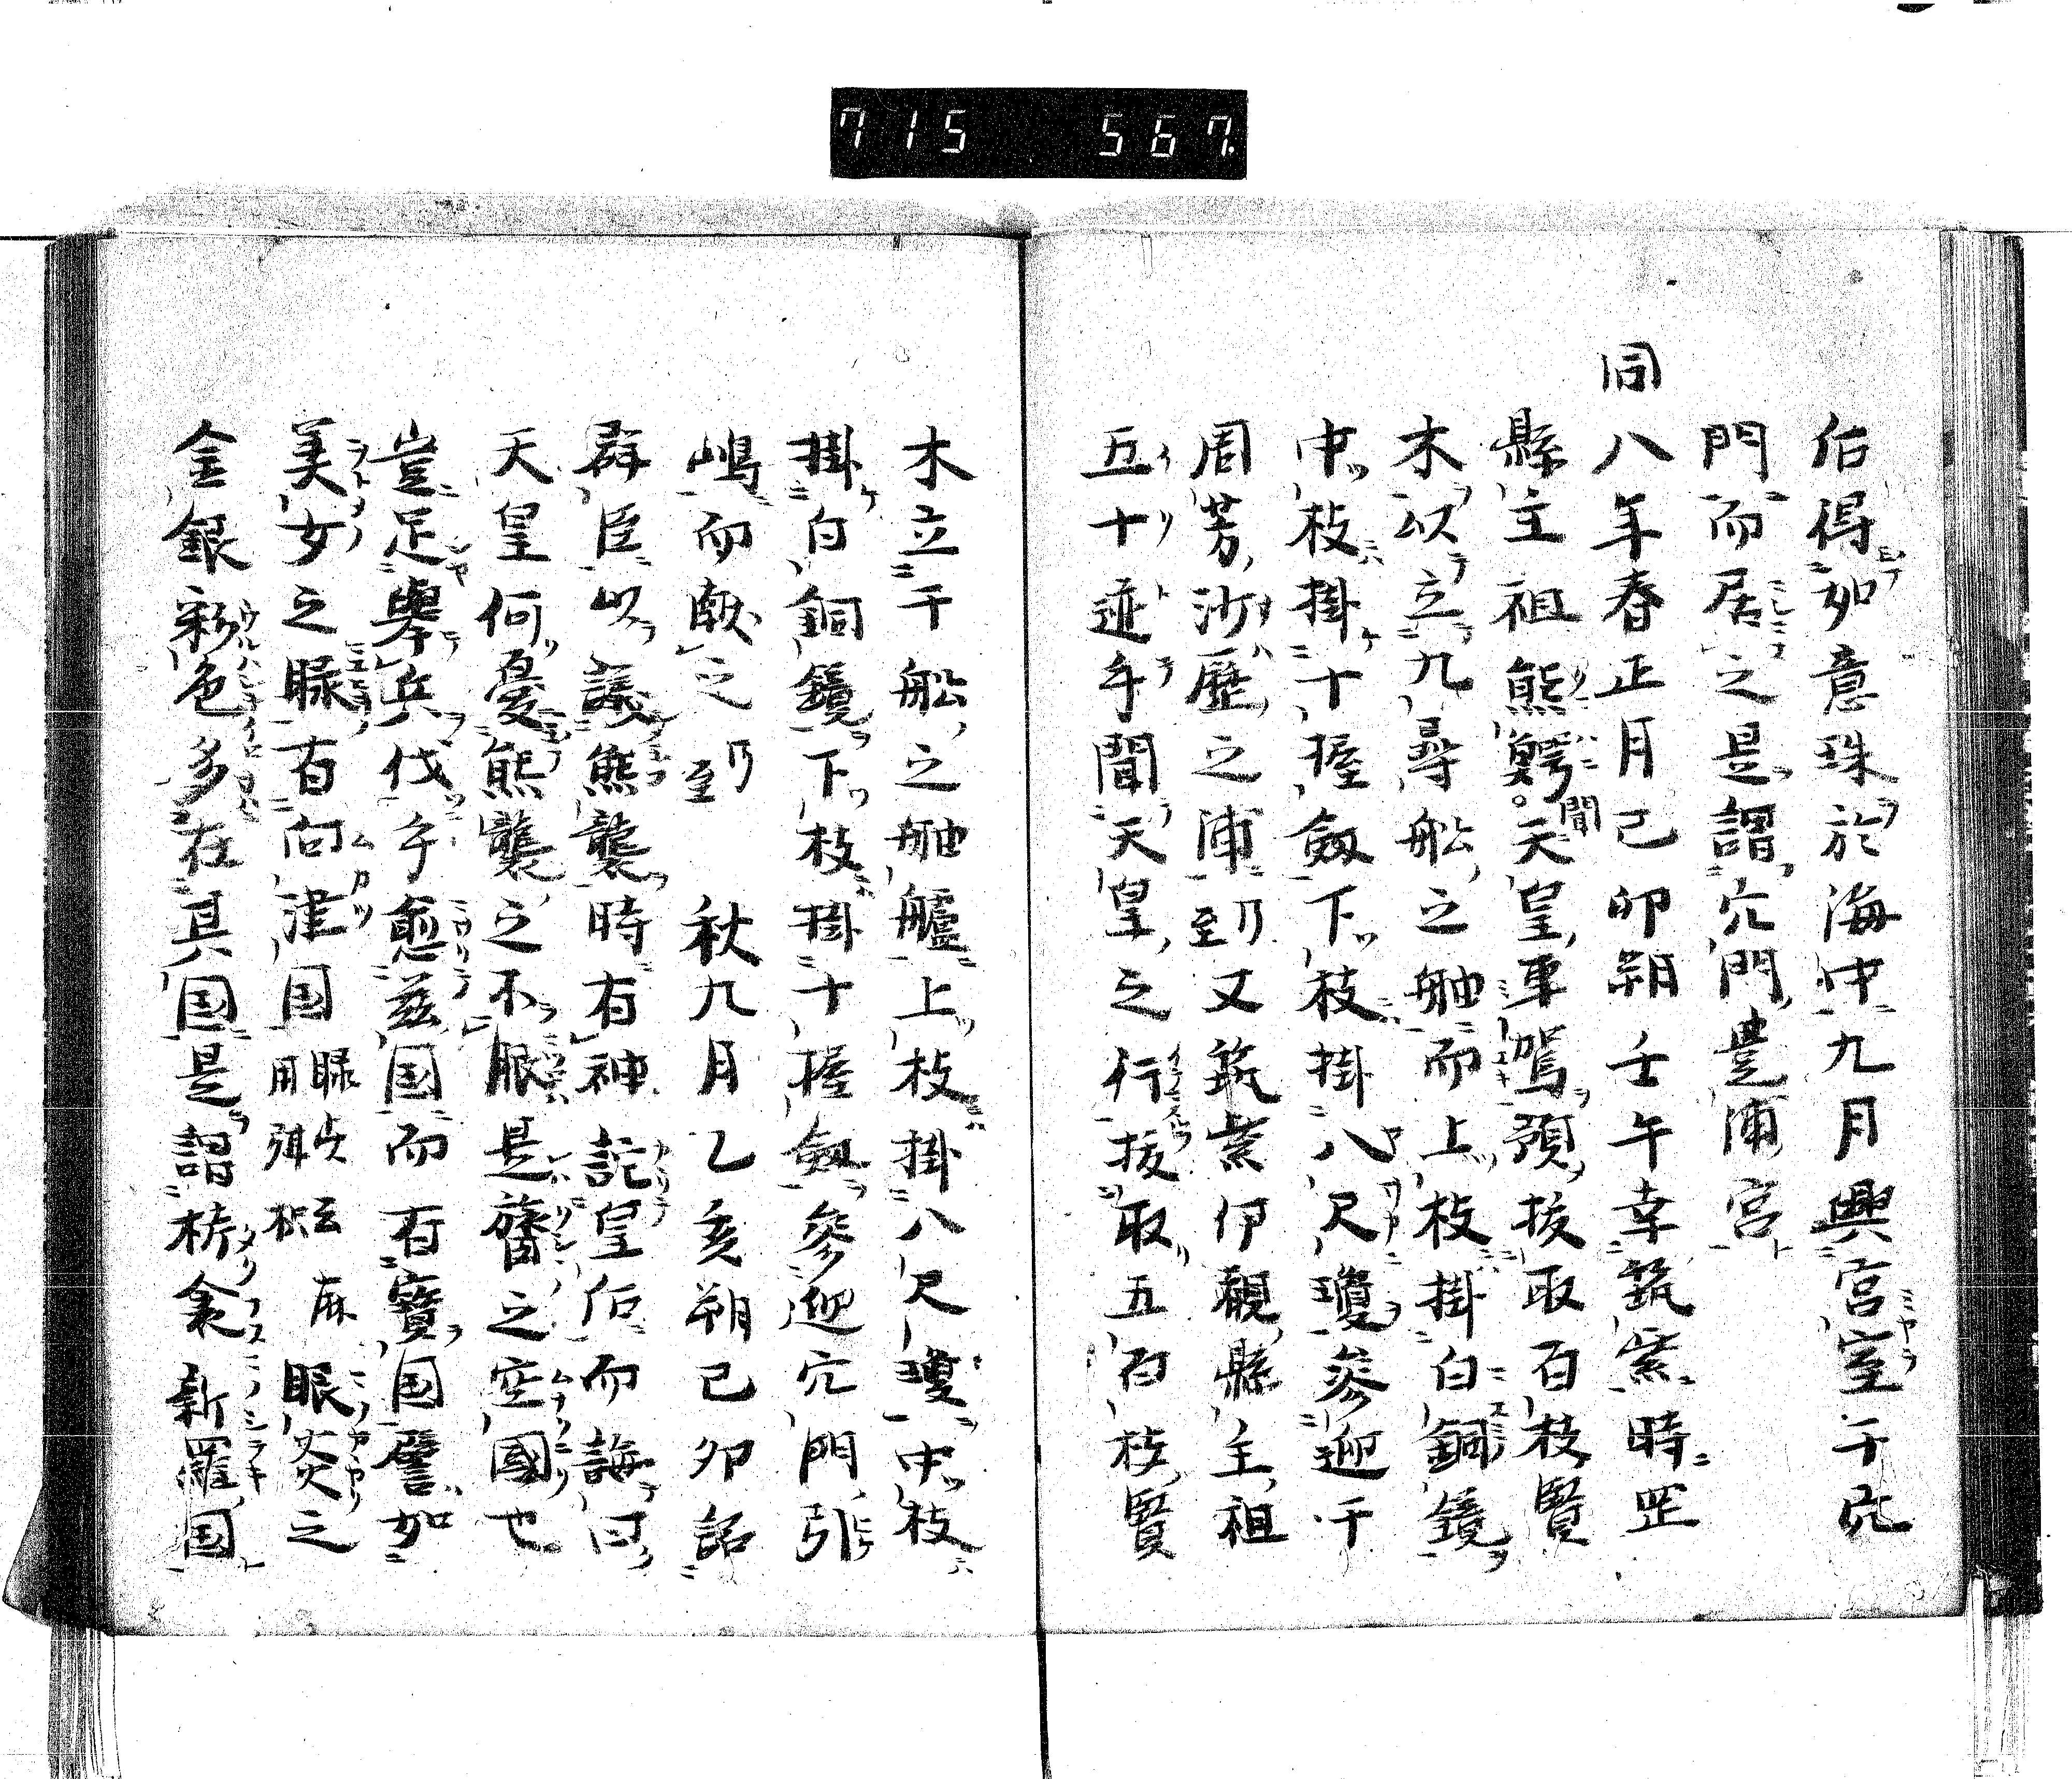 715 567.
后得如意珠於海中九月興宮室于穴
門而居之是謂穴門豊浦宮
同八年春正月己卯朔壬午幸筑紫時罡
縣主祖熊鰐聞天皇車駕預抜取百枝賢
木以立九尋舩之舳而上枝掛白銅鏡
中枝掛十握釼下枝掛八尺瓊参迎于
周芳沙麽之浦乃至又筑紫伊覩縣主祖
五十迹手聞天皇之行抜取五百枝賢
木立于舩之舳艫上枝掛八尺瓊中枝
掛白銅鏡下枝掛十握釼参迎穴門引
嶋而献之乃至秋九月乙亥朔己卯詔
群臣以議熊襲時有神託皇后而誨曰
天皇何憂熊襲之不服是膂之空國也
豈足舉兵伐乎愈茲国而有寳国譬如
美女之睩有向津国睩此云麻用弭枳眼炎之
金銀彩色多在其国是謂栲衾新羅国